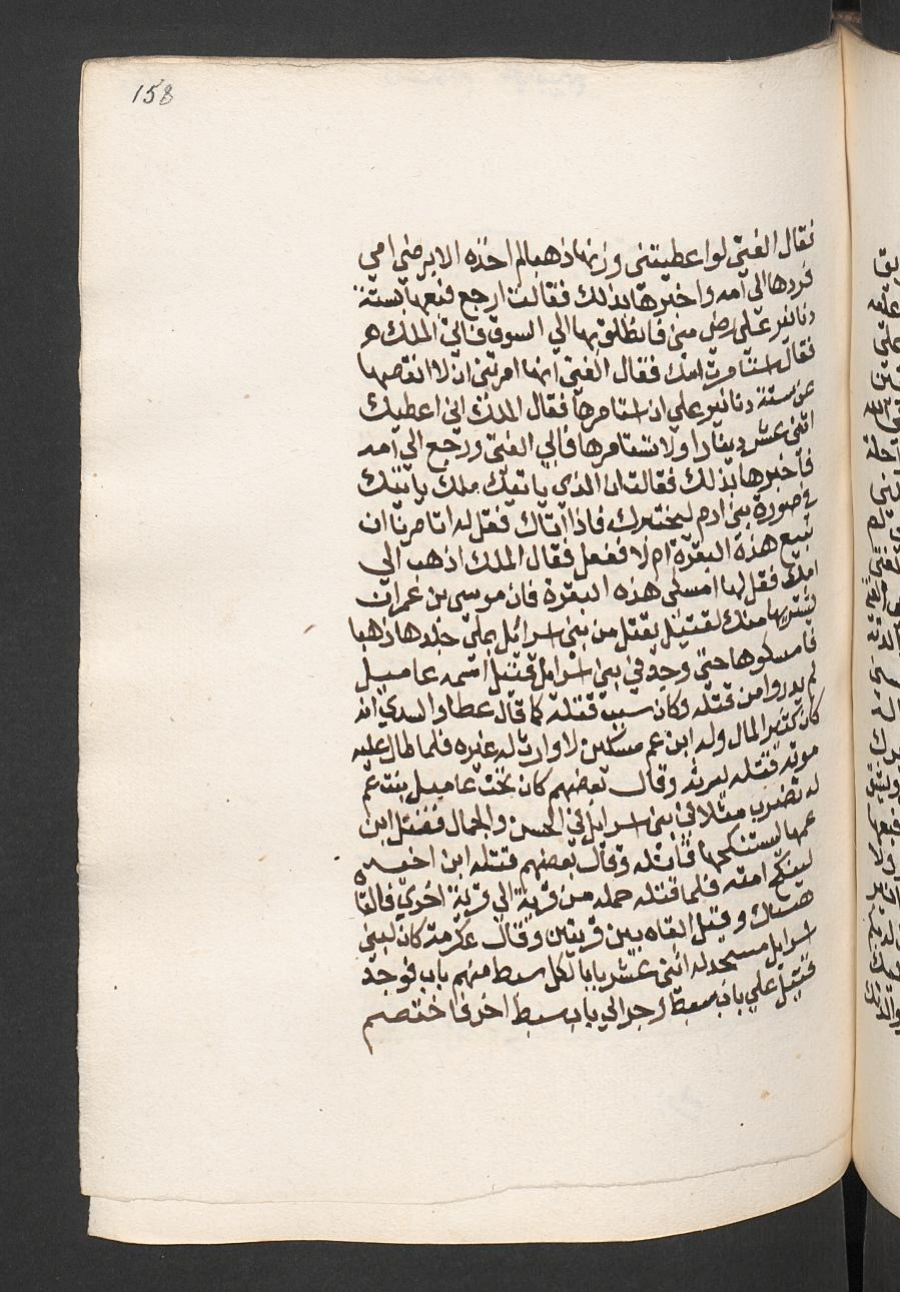 158
فقال الفتى لو اعطيتنى وزنها ذهبا لم اخذه الا برضى امي
فردها الى امه واخبرها بذلك فقالت ارجع فبعها بستة
دنانير على رضى منى فانطلق بها الى السوق فاتى الملك
فقال استامرت امك فقال الفتى انها امرتنى ان لا انقصها
عن ستة دنانير على ان استامرها فقال الملك انى اعطيك
اثنى عشر دينارا ولا تستامرها فابى الفتى ورجع الى امه
فاخبرها بذلك فقالت ان الذي ياتيك ملك ياتيك
في صورة بنى ادم ليختبرك فاذا اتاك فقل له اتامرنا ان
نبيع هذه البقرة ام لا ففعل فقال الملك اذهب الى
امك فقل لها امسكى هذه البقرة فان موسى بن عمران
يشتريها منك لقتيل يقتل من بنى اسرائل بملئ جلدها ذهبا
فامسكوها حتى وجد في بنى اسرايل قتيل اسمه عاميل
لم يدروا من قتله وكان سبب قتله كما قال عطا والسدي انه
كان كثير المال وله ابن عم مسكين لا وارث له غيره فلما طال عليه
موته قتله ليرثه وقال بعضهم كان تحت عاميل بنت عم
له تضرب مثلا في بنى اسرايل في الحسن والجمال فقتل ابن
عمها ليستنكحها فاقتله وقال بعضهم قتله ابن اخيه
لينكح امته فلما قتله حمله من قرية الى قرية اخرى فالقا
هناك وقيل القاه بين قريتين وقال عكرمة كان لبنى
اسرايل مسجد له اثنى عشر بابا لكل سبط منهم باب فوجد
قتيل على باب سبط وجر الى باب سبط اخر فاختصم